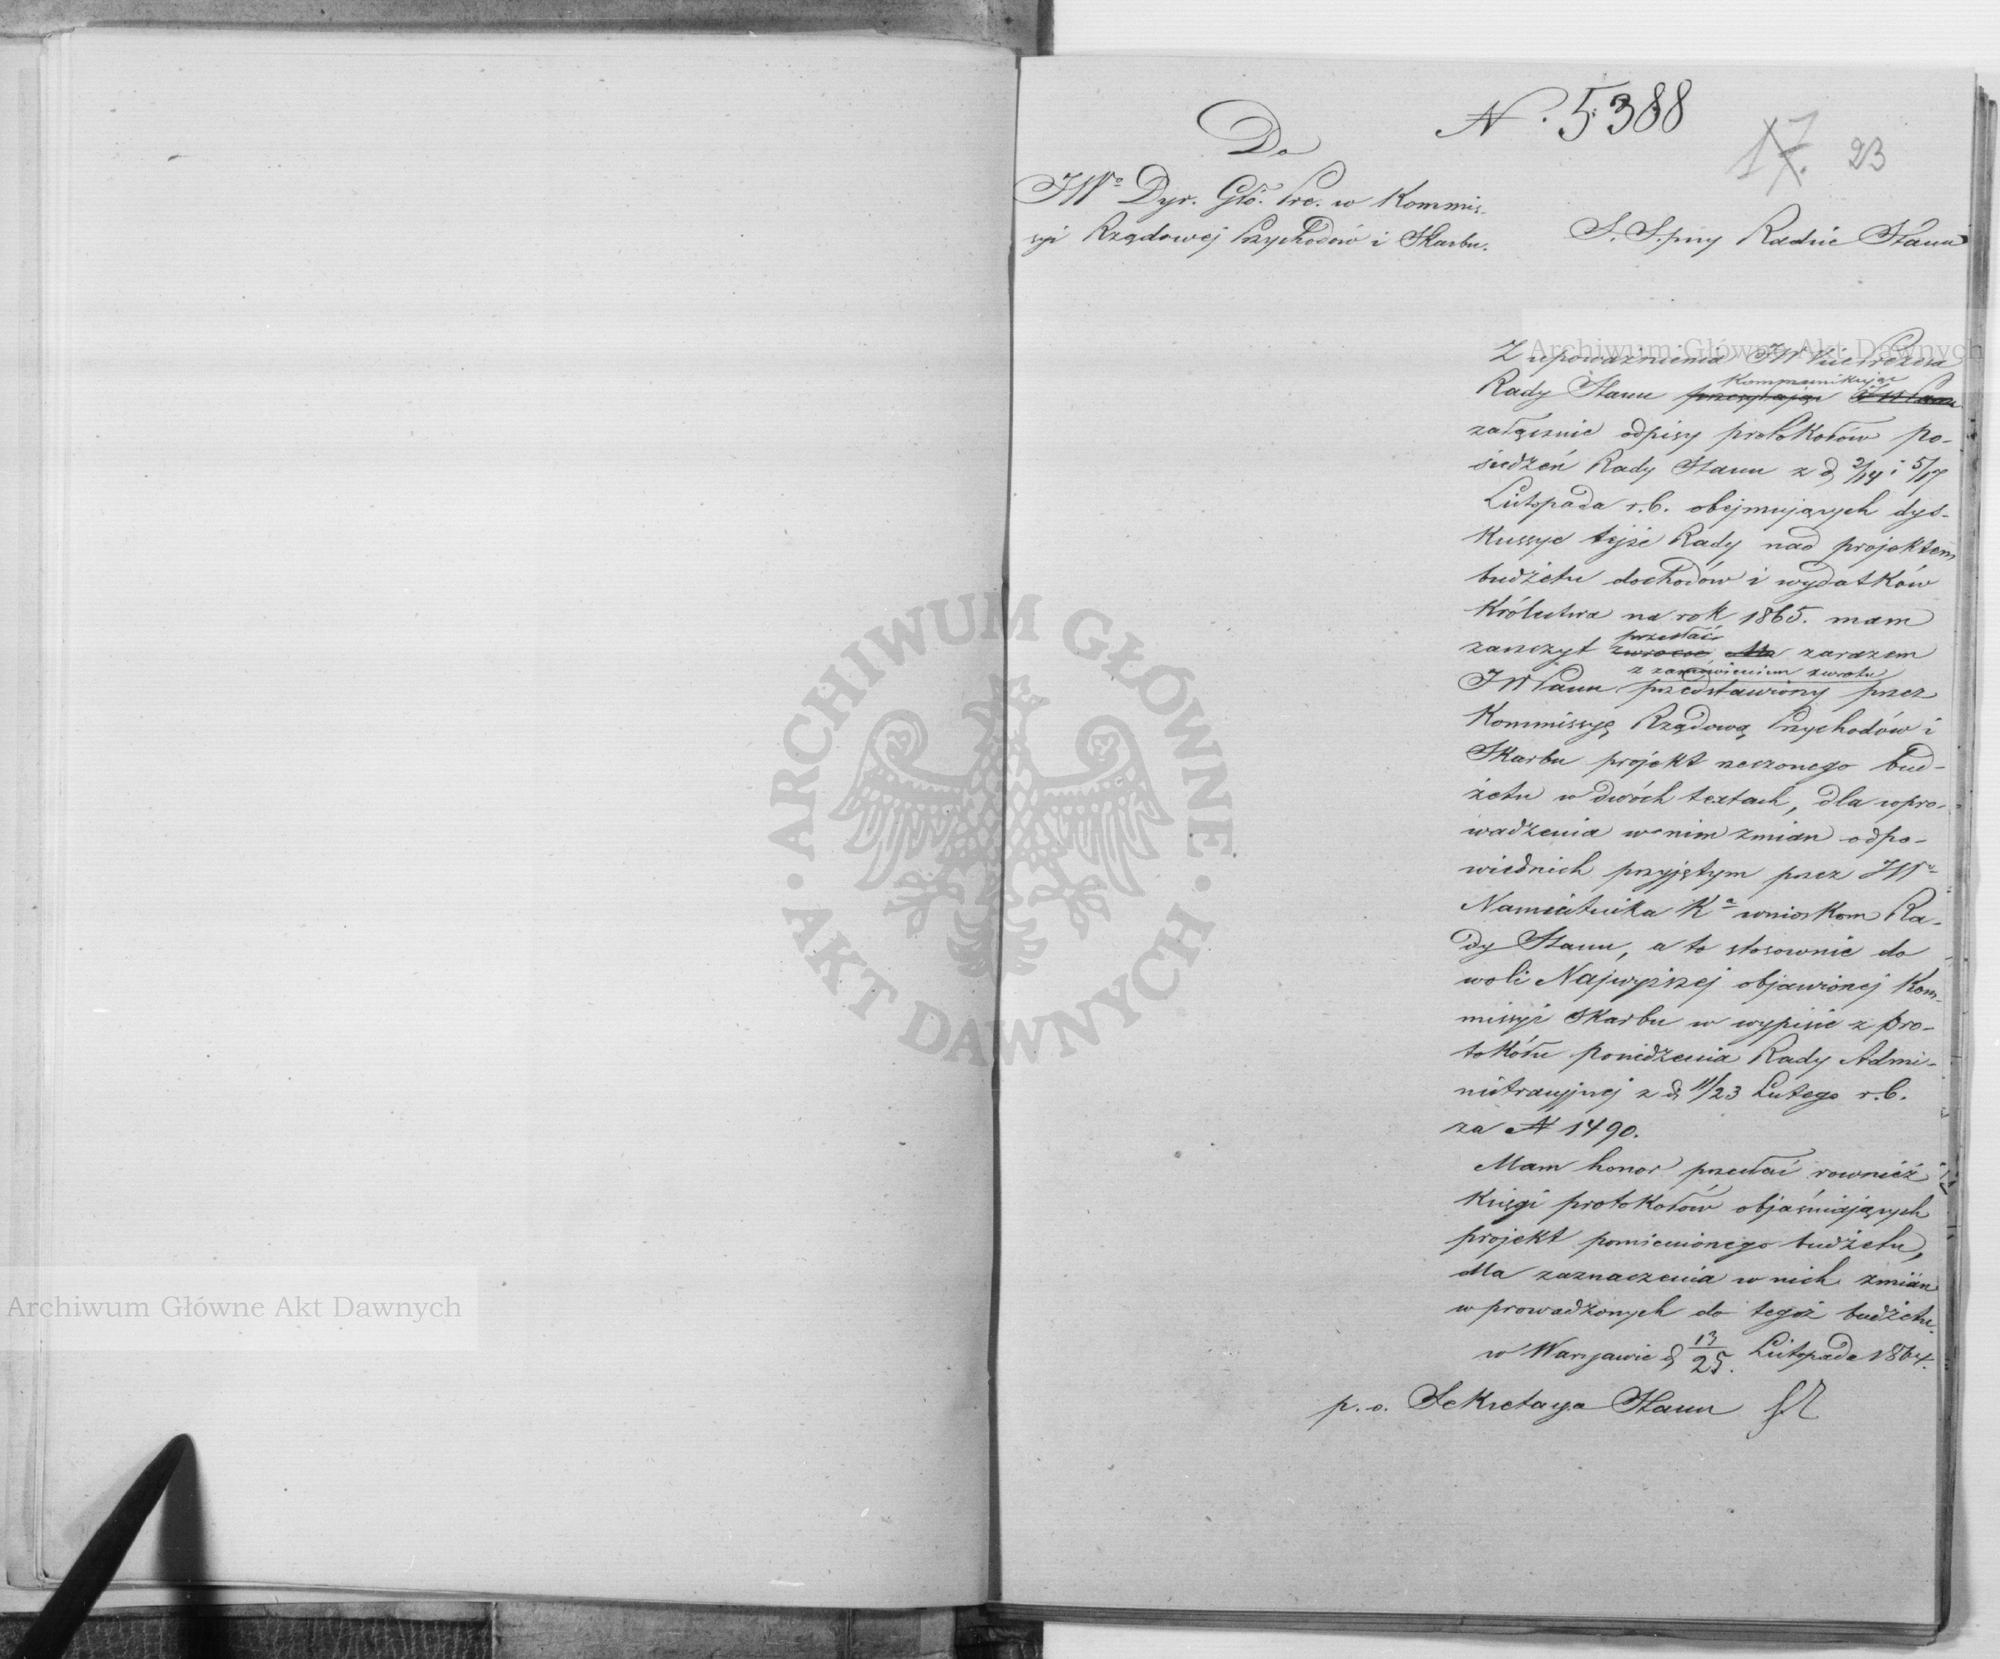 N. 5388
17. 23
Do
JWo Dyr. Głó. Prez. w Kommis-
syi Rządowej Przychodów i Skarbu.
S. S. przy Radzie Stanu
Z upoważnienia JW Vice Prezesa
Kommunikując
Rady Stanu przesyłając JW Panu
załącznie odpisy protokołów po-
siedzeń Rady Stanu z d. 2/14 i 5/17
Listopada r.b. obejmujących dys-
kussye tejże Rady nad projektem
budżetu dochodów i wydatków
Królestwa na rok 1865. mam
przesłać
zaszczyt zwrócić Mu zarazem
z zamówieniem zwrotu
JW Panu przedstawiony przez
Kommissyę Rządową Przychodów i
Skarbu projekt rzeczonego bud-
żetu w dwóch textach, dla wpro-
wadzenia w nim zmian odpo-
wiednich przyjętym przez JWo
Namiestnika Ka wnioskom Ra-
dy Stanu, a to stosownie do
woli Najwyższej objawionej Kom-
missyi Skarbu w wypisie z pro-
tokółu posiedzenia Rady Admi-
nistracyjnej z d. 11/23 Lutego r.b.
za N 1490.
Mam honor przesłać również
księgi protokołów objaśniających
projekt pomienionego budżetu,
dla zaznaczenia w nich zmian
wprowadzonych do tegoż budżetu.
w Warszawie d. 13/25. Listopada 1864.
p. o. Sekretarza Stanu
ARCHIWUM GŁÓWNE · AKT DAWNYCH ·
Archiwum Główne Akt Dawnych
Archiwum Główne Akt Dawnych